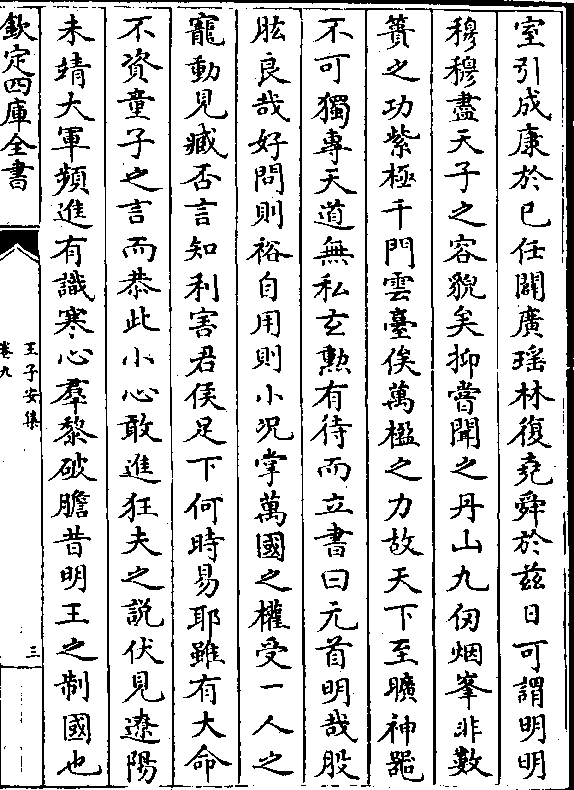 室引成康於已任闢廣瑶林復堯舜於兹日可謂明明
穆穆盡天子之容貌矣抑嘗聞之丹山九仞烟峯非數
簣之功紫極千門雲臺俟萬楹之力故天下至曠神噐
不可獨專天道無私玄勲有待而立書曰元首明哉股
肱良哉好問則裕自用則小况掌萬國之權受一人之
寵動見臧否言知利害君侯足下何時易耶雖有大命
不資童子之言而恭此小心敢進狂夫之説伏見遼陽
未靖大軍頻進有識寒心羣黎破膽昔明王之制國也
欽定四庫全書
王子安集
卷九
三